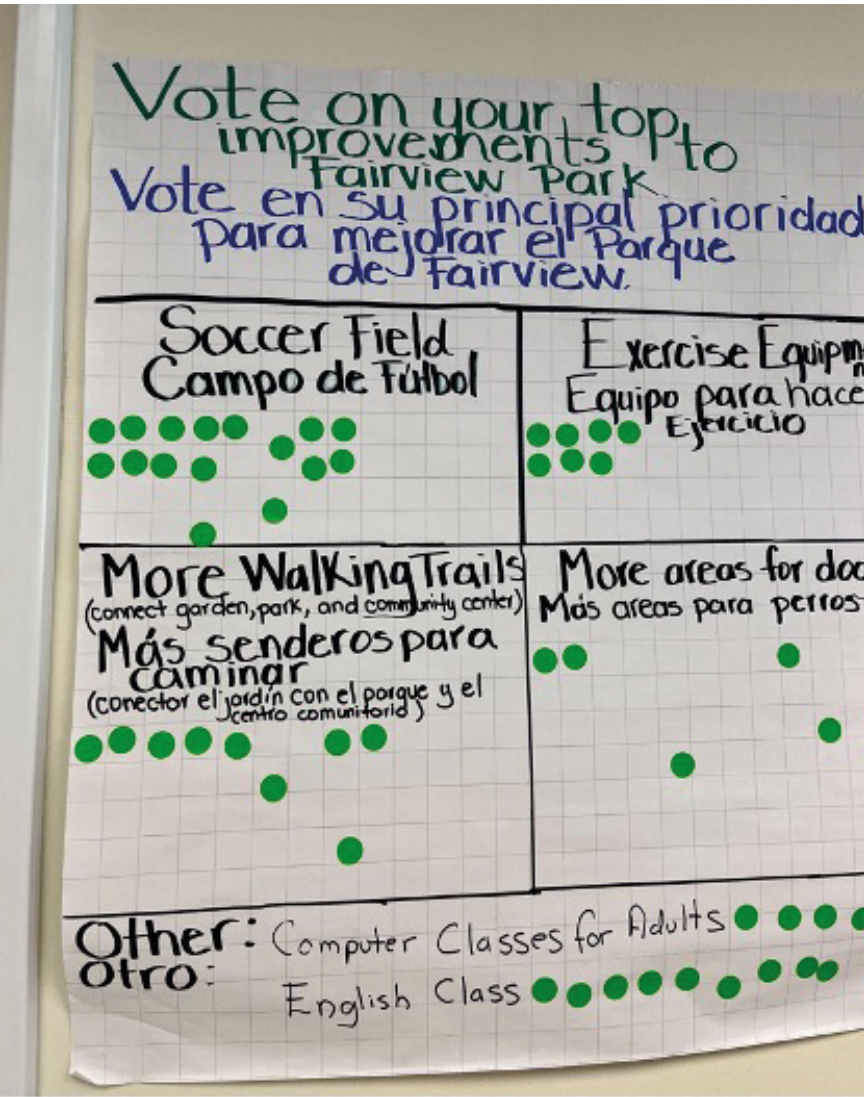 Vote on your top
improvements to
Fairview Park
Vote en su principal prioridad
para mejorar el Parque
de Fairview.
Soccer Field
Campo de Fútbol
Exercise Equipm
Equipo para hace
Ejercicio
More Walking Trails
(connect garden, park, and community center)
Más senderos para
caminar
(conector el jardín con el parque y el
centro comunitario)
More areas for dog
Más areas para perros
Other: Computer Classes for Adults
Otro:
English Class